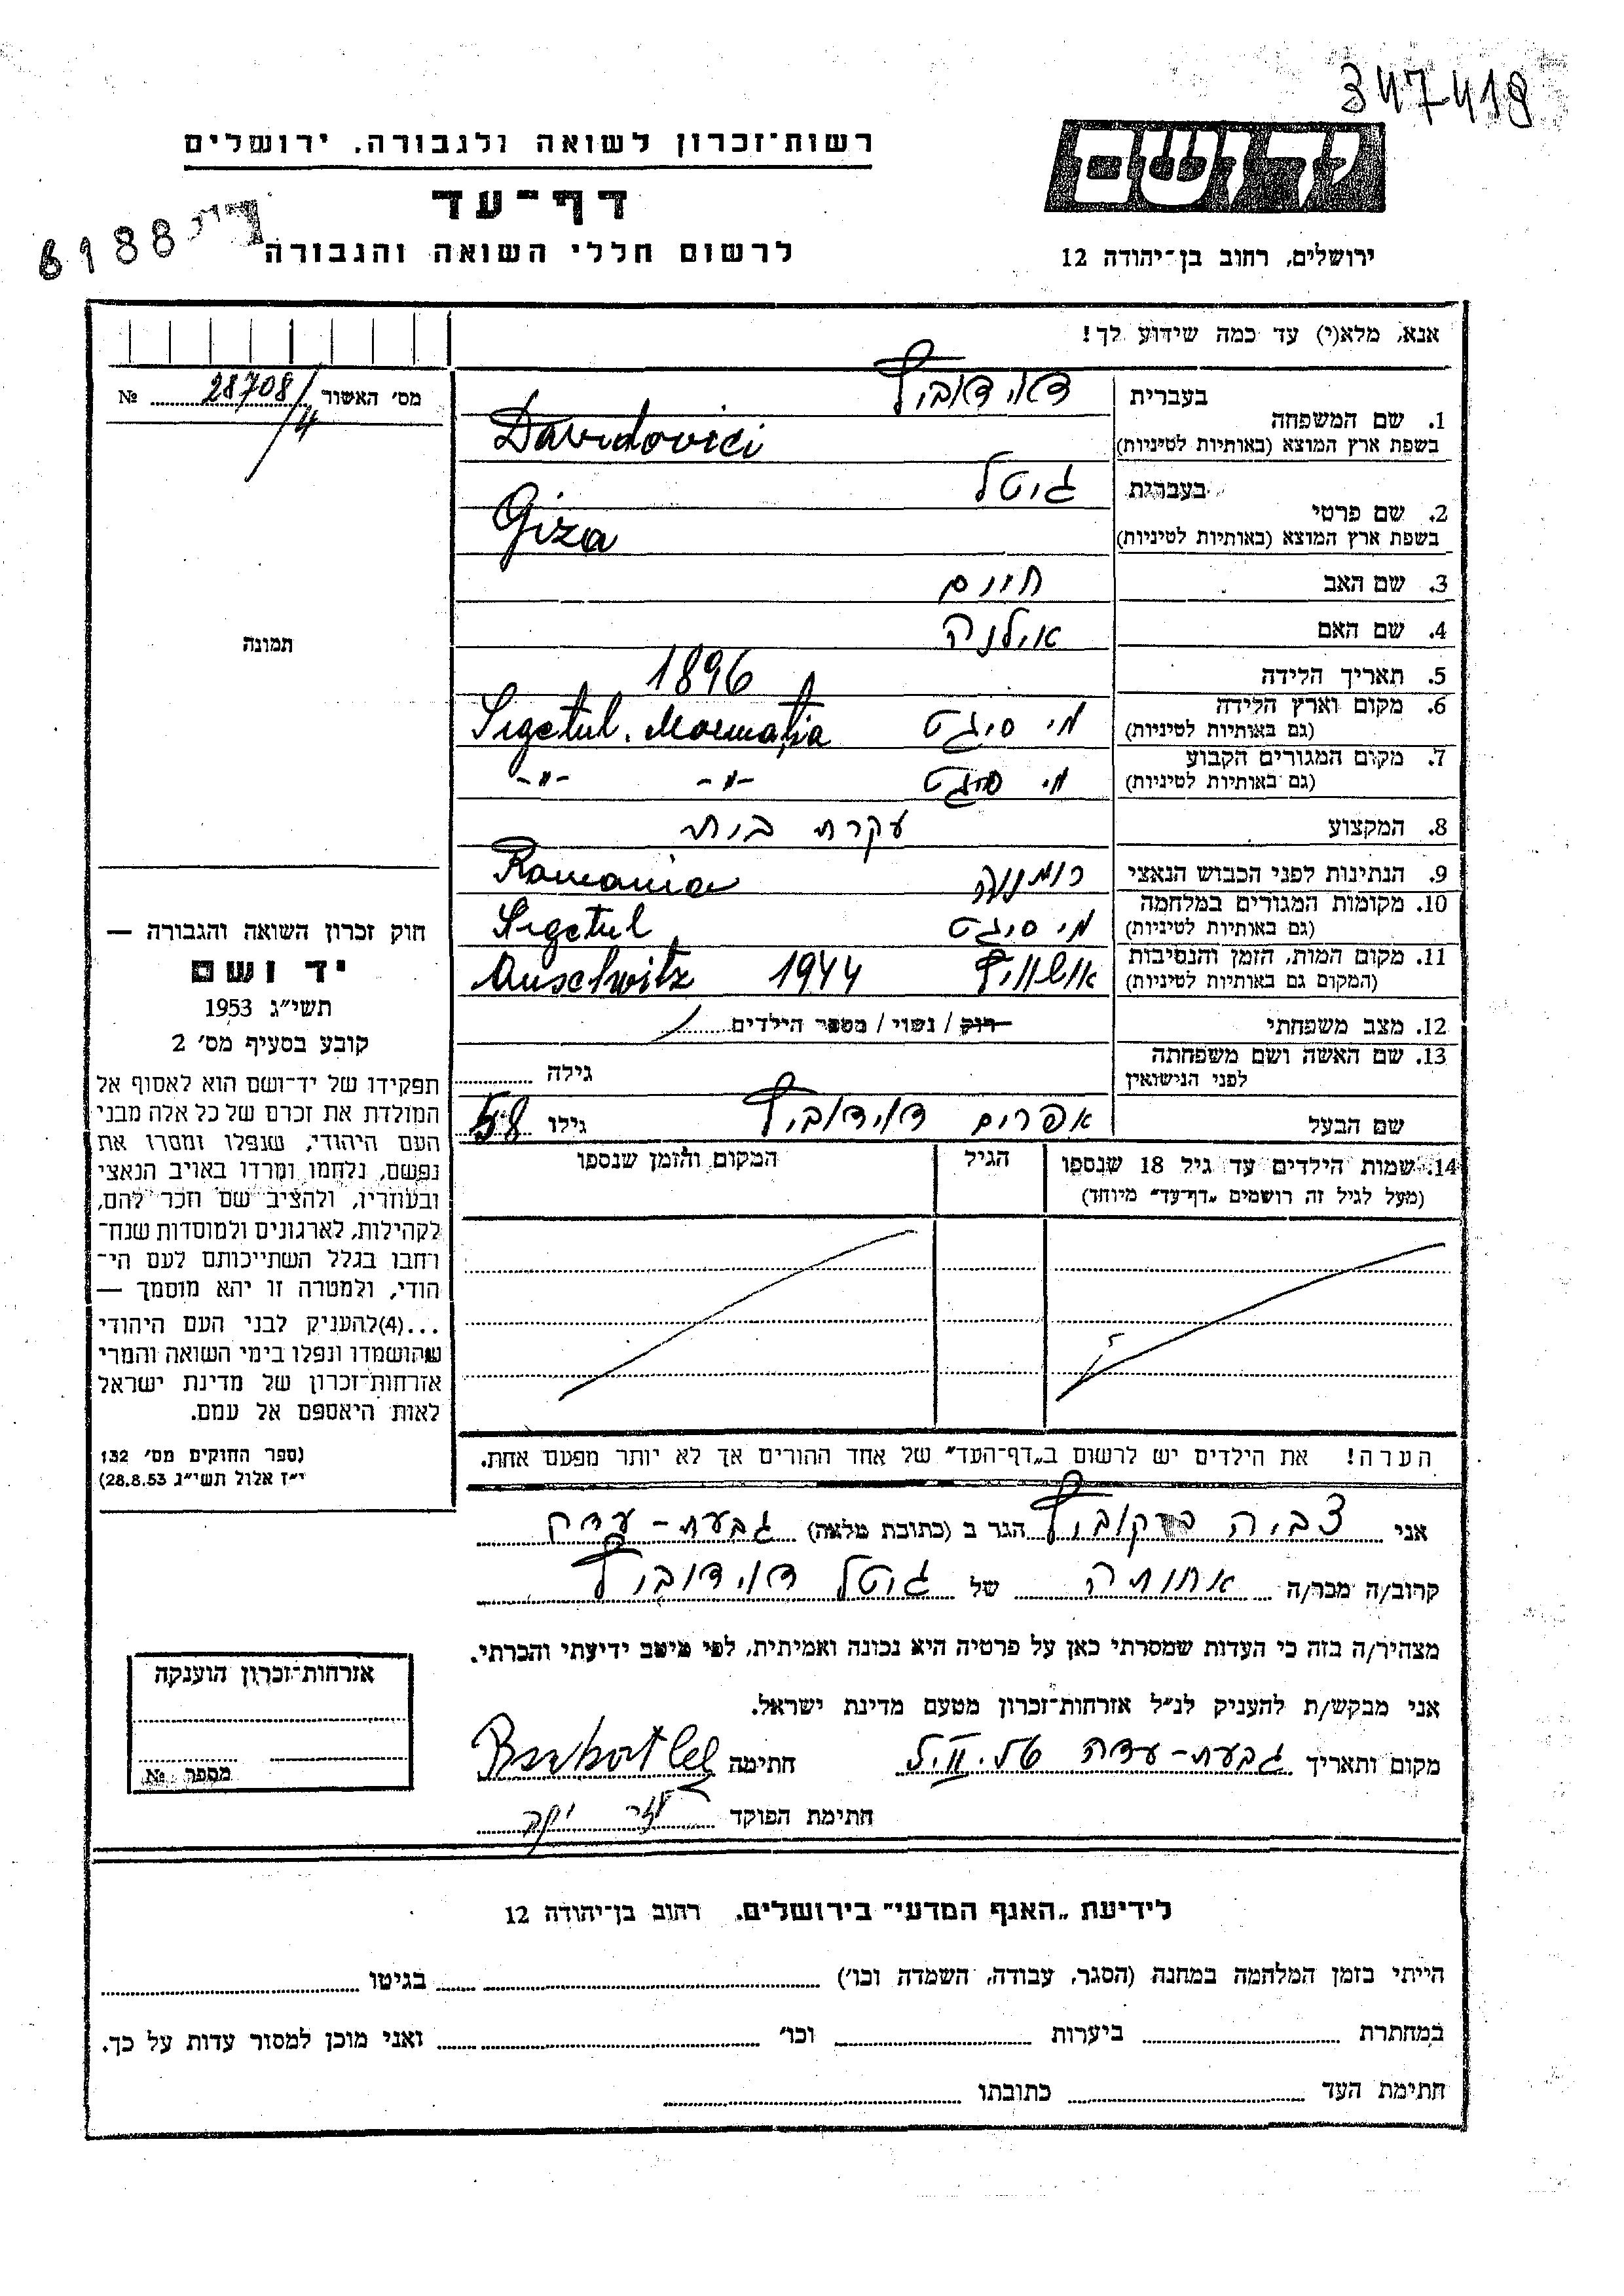 347418
רשות־זכרון לשואה ולגבורה, ירושלים
יד ושם
דף־עד
6188
לרשום חללי השואה והגבורה
ירושלים, רחוב בן־יהודה 12
אנא, מלא(י) עד כמה שידוע לך!
מס' האשור 28708/4 №
בעברית דוידוביץ
1. שם המשפחה
בשפת ארץ המוצא (באותיות לטיניות) Davidovici
בעברית גיטל
2. שם פרטי
בשפת ארץ המוצא (באותיות לטיניות) Giza
3. שם האב חיים
4. שם האם אילנה
תמונה
5. תאריך הלידה 1896
6. מקום וארץ הלידה
(גם באותיות לטיניות) מ. סיגט Sigetul. Marmatia
7. מקום המגורים הקבוע
(גם באותיות לטיניות) מ. סיגט -"- -"-
8. המקצוע עקרת בית
9. הנתינות לפני הכבוש הנאצי רומניה Romania
10. מקומות המגורים במלחמה
(גם באותיות לטיניות) מ. סיגט Sigetul
11. מקום המות, הזמן והנסיבות
(המקום גם באותיות לטיניות) אושוויץ 1944 Auschwitz
12. מצב משפחתי רוק / נשוי / מספר הילדים
13. שם האשה ושם משפחתה
לפני הנישואין גילה
שם הבעל אפרים דוידוביץ גילו 58
14. שמות הילדים עד גיל 18 שנספו
(מעל לגיל זה רושמים „דף־עד" מיוחד)
הגיל
המקום והזמן שנספו
חוק זכרון השואה והגבורה —
יד ושם
תשי"ג 1953
קובע בסעיף מס' 2
תפקידו של יד־ושם הוא לאסוף אל
המולדת את זכרם של כל אלה מבני
העם היהודי, שנפלו ומסרו את
נפשם, נלחמו ומרדו באויב הנאצי
ובעוזריו, ולהציב שם וזכר להם,
לקהילות, לארגונים ולמוסדות שנח־
רחבו בגלל השתייכותם לעם הי־
הודי, ולמטרה זו יהא מוסמך —
...(4)להעניק לבני העם היהודי
שהושמדו ונפלו בימי השואה והמרי
אזרחות־זכרון של מדינת ישראל
לאות היאספם אל עמם.
(ספר החוקים מס' 132
י"ז אלול תשי"ג 28.8.53)
הערה! את הילדים יש לרשום ב„דף־העד" של אחד ההורים אך לא יותר מפעם אחת.
אני צביה ברקוביץ הגר ב (כתובת מלאה) גבעת-עדה
קרוב/ה מכר/ה אחותה של גיטל דוידוביץ
מצהיר/ה בזה כי העדות שמסרתי כאן על פרטיה היא נכונה ואמיתית, לפי מיטב ידיעתי והכרתי.
אני מבקש/ת להעניק לנ"ל אזרחות־זכרון מטעם מדינת ישראל.
מקום ותאריך גבעת-עדה חתימה
חתימת הפוקד
אזרחות־זכרון הוענקה
מספר №
לידיעת „האגף המדעי" בירושלים. רחוב בן־יהודה 12
הייתי בזמן המלחמה במחנה (הסגר, עבודה, השמדה וכו') בגיטו
במחתרת ביערות וכו' ואני מוכן למסור עדות על כך.
חתימת העד כתובתו